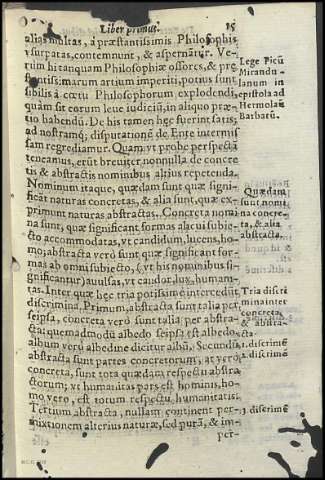 Liber primus. 15
alias multas, à præstantissimis Philosophis
vsurpatas, contemnunt, & aspernãtur. Ve-
rùm hi tanquam Philosophiæ osores, & præ
stantissimarum artium imperiti, potiùs sunt
sibilis à cœtu Philosophorum explodendi,
quàm sit eorum leue iudiciũ, in aliquo præ-
tio habendũ. De his tamen hęc fuerint satis;
ad nostramq; disputationẽ de Ente intermis
sam regrediamur. Quam vt probè perspectã
teneamus, erũt breuiter nonnulla de concre
tis & abstractis nominibus altiùs repetenda.
Nominum itaque, quædam sunt quæ signi-
ficãt naturas concretas, & alia sunt, quæ ex-
primunt naturas abstractas. Concreta nomi
na sunt, quæ significant formas alacui subie-
cto accommodatas, vt candidum, lucens, ho-
mo; abstracta verò sunt quæ significant for-
mas ab omni subiecto, (vt his nominibus si-
gnificantur) auulsas, vt candor, lux, humani-
tas. Inter quæ hęc tria potissimè intercedũt
discrimina. Primum, abstracta sunt talia per
seipsa, concreta verò sunt talia per abstra-
cta: quemadmodũ albedo seipsa est albedo,
album verò albedine dicitur albũ. Secundũ,
abstracta sunt partes concretorum, at verò
concreta, sunt tota quædam respectu abstra
ctorum; vt humanitas pars est hominis, ho-
mo verò, est totum respectu humanitatis.
Tertium abstracta, nullam continent per-
mixtionem alterius naturæ, sed purã, & im-
per-
Lege Picũ
Mirandu-
lanum in
epistola ad
Hermolaũ
Barbarũ.
Quædam
sunt nomi
na concre-
ta, & alia
abstracta.
Tria discri
mina inter
concreta,
& abstra-
cta.
1. discrimẽ
2. discrimẽ
3. discrimẽ